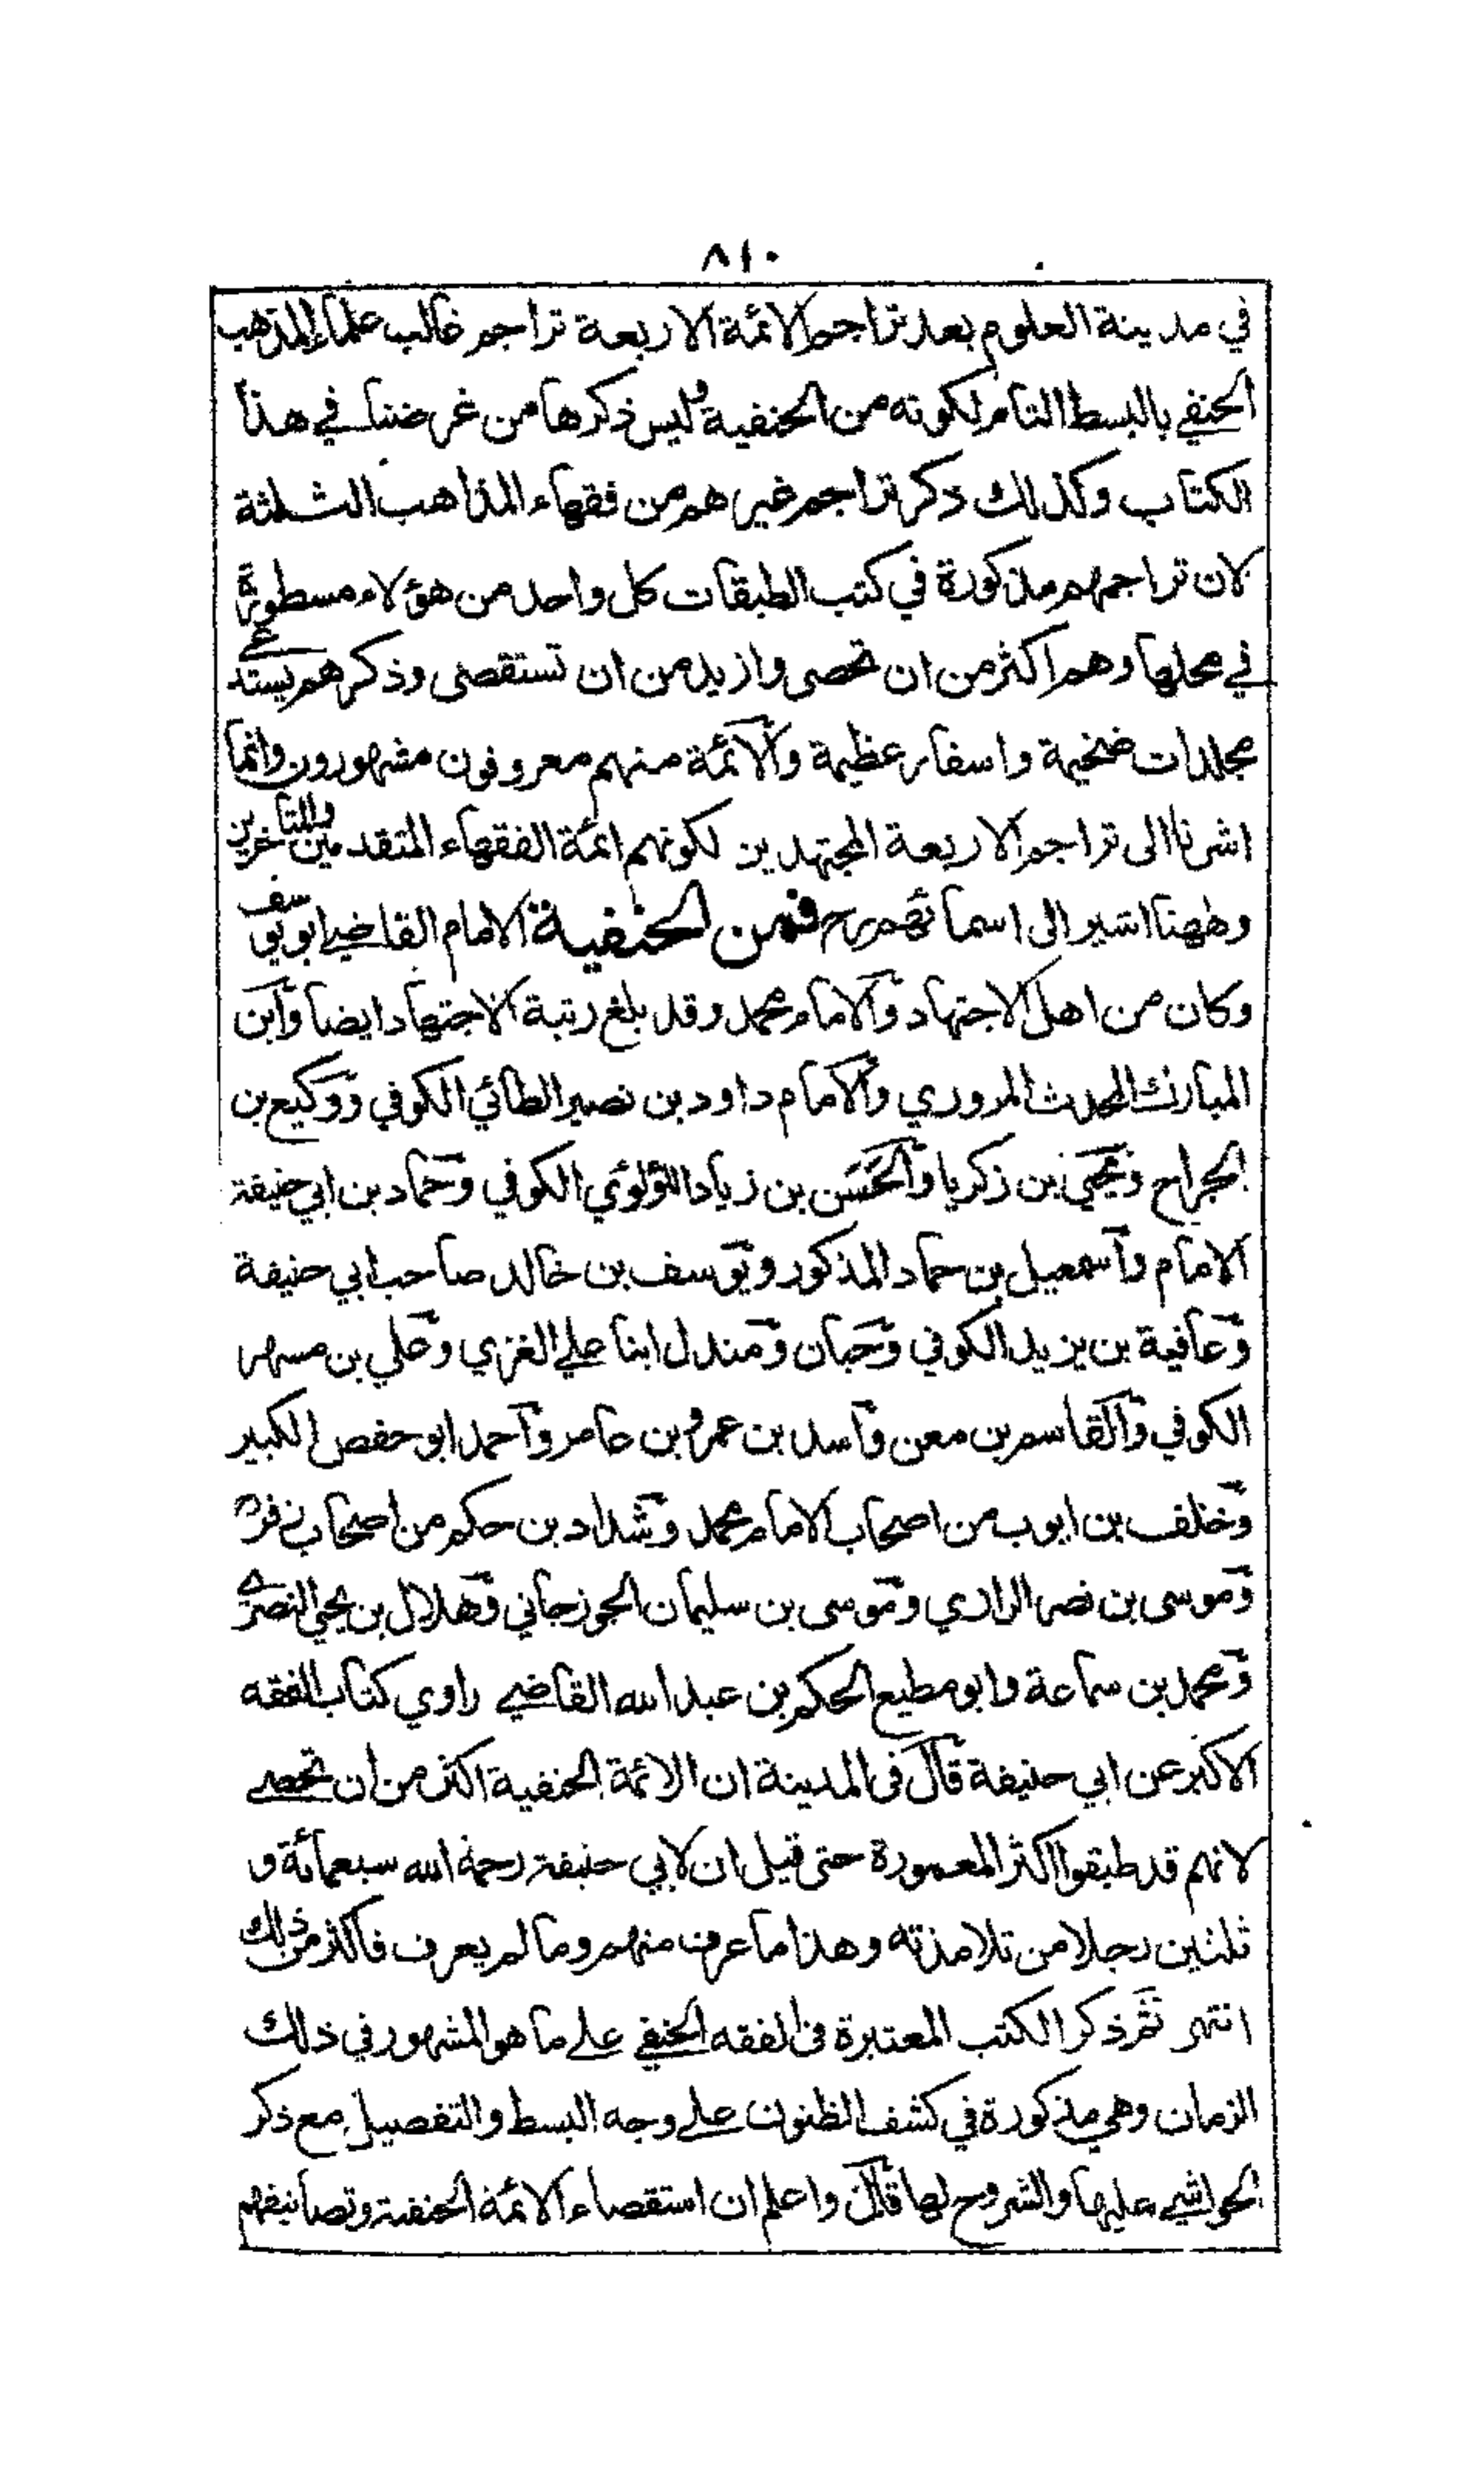 ٨١٠
في مدينة العلوم بعد تراجم الائمة الاربعة تراجم غالب علماء المذهب
الحنفي بالبسط التام لكونه من الحنفية وليس ذكرها من غرضنا في هذا
الكتاب وكذلك ذكر تراجم غيرهم من فقهاء المذاهب الثلثة
لان تراجمهم مذكورة في كتب الطبقات كل واحد من هؤلاء مسطورة
في محلها وهم اكثر من ان تحصى وازيد من ان تستقصى وذكرهم يستدعي
مجلدات ضخيمة واسفار عظيمة والائمة منهم معروفون مشهورون وانما
اشرنا الى تراجم الاربعة المجتهدين لكونهم ائمة الفقهاء المتقدمين والمتاخرين
وههنا اشير الى اسمائهم رح فمن الحنفية الامام القاضي ابو يوسف
وكان من اهل الاجتهاد والامام محمد وقد بلغ رتبة الاجتهاد ايضا وابن
المبارك المحدث المروري والامام داود بن نصير الطائي الكوفي ووكيع بن
الجراح ويحيى بن زكريا والحسن بن زياد اللؤلوئي الكوفي وحماد بن ابي حنيفة
الامام واسمعيل بن حماد المذكور ويوسف بن خالد صاحب ابي حنيفة
وعافية بن يزيد الكوفي وحبان ومندل ابنا علي الغزي وعلي بن مسهر
الكوفي والقاسم بن معن واسد بن عمرو بن عامر واحمد ابو حفص الكبير
وخلف بن ايوب من اصحاب الامام محمد وشداد بن حكم من اصحاب زفر
وموسى بن نصر الرازي وموسى بن سليمان الجوزجاني وهلال بن يحيى النصري
ومحمد بن سماعة وابو مطيع الحكم بن عبد الله القاضي راوي كتاب الفقه
الاكبر عن ابي حنيفة قال فى المدينة ان الائمة الحنفية اكثر من ان تحصى
لانهم قد طبقوا اكثر المعمورة حتى قيل ان لابي حنيفة رحمه الله سبعمائة و
ثلثين رجلا من تلامذته وهذا ما عرف منهم وما لم يعرف فاكثر من ذلك
انتهى ثم ذكر الكتب المعتبرة فى الفقه الحنفي على ما هو المشهور في ذلك
الزمان وهي مذكورة في كشف الظنون على وجه البسط والتفصيل مع ذكر
الحواشي عليها والشروح لها قال واعلم ان استقصاء الائمة الحنفية وتصانيفهم